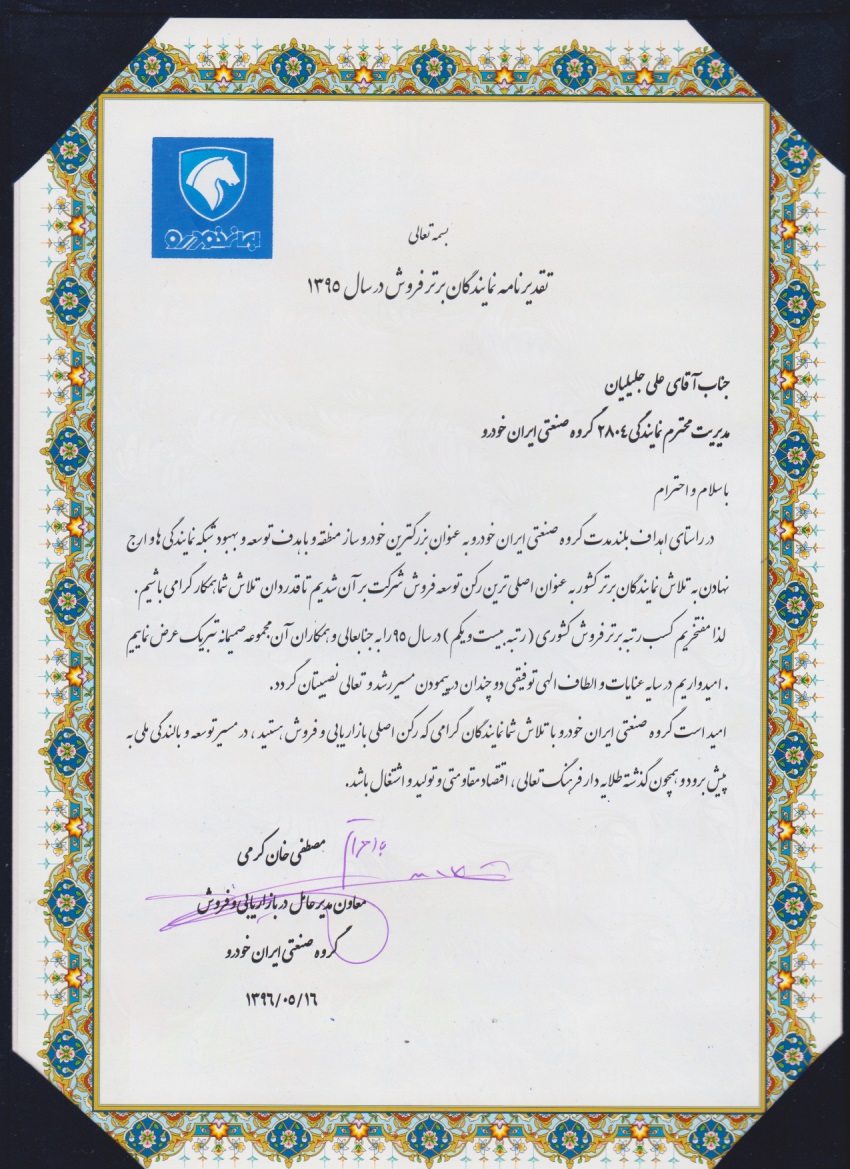 ایران خودرو
بسمه تعالی
تقدیرنامه نمایندگان برتر فروش در سال ۱۳۹۵
جناب آقای علی جلیلیان
مدیریت محترم نمایندگی ۲۸۰۴ گروه صنعتی ایران خودرو
با سلام و احترام
در راستای اهداف بلند مدت گروه صنعتی ایران خودرو به عنوان بزرگترین خودرو ساز منطقه و با هدف توسعه و بهبود شبکه نمایندگی ها و ارج
نهادن به تلاش نمایندگان برتر کشور به عنوان اصلی ترین رکن توسعه فروش شرکت بر آن شدیم تا قدردان تلاش شما همکار گرامی باشیم .
لذا مفتخریم کسب رتبه برتر فروش کشوری ( رتبه بیست و یکم ) در سال ۹۵ را به جنابعالی و همکاران آن مجموعه صمیمانه تبریک عرض نماییم
. امیدواریم در سایه عنایات و الطاف الهی توفیقی دو چندان در پیمودن مسیر رشد و تعالی نصیبتان گردد.
امید است گروه صنعتی ایران خودرو با تلاش شما نمایندگان گرامی که رکن اصلی بازاریابی و فروش هستید ، در مسیر توسعه و بالندگی ملی به
پیش برود و همچون گذشته طلایه دار فرهنگ تعالی ، اقتصاد مقاومتی و تولید و اشتغال باشد.
با احترام
مصطفی خان کرمی
معاون مدیر عامل در بازاریابی و فروش
گروه صنعتی ایران خودرو
۱۳۹۶/۰۵/۱۶